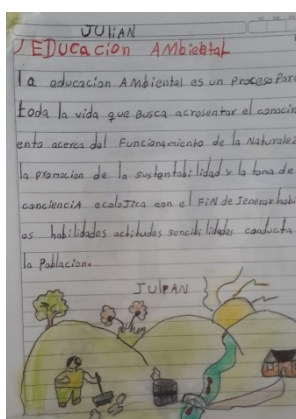 JULiAN
EDUcacion AMbiebtal
la educacion AMbiental es un Proceso Para
toda la vida que Busca acresentar el conocin
ento acerca del Funcionamiento de la Naturalez
la promocion de la sustentabilidad y la toma de
conciencia ecoloJica con el FiN de Jenerar habi
as habilidades actitudes sencibilidades conducta
la Poblacion.
JULIAN